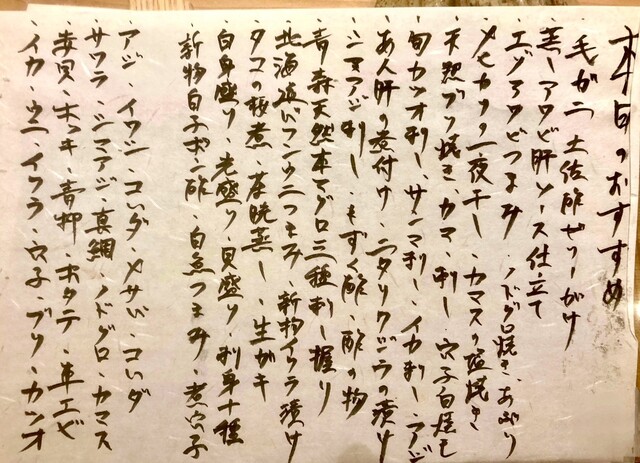 本日のおすすめ
毛がニ 土佐酢ゼリーがけ
蒸しアワビ肝ソース仕立て
エゾアワビつまみ ・ノドグロ焼き・あぶり
メヒカリの一夜干し ・カマスの塩焼き
天然ブリ焼き・カマ・刺し・穴子白焼き
旬カツオ刺し・サンマ刺し・イカ刺し・アジ
あん肝の煮付け・ニタリクジラの漬け
・シマアジ刺し・もずく酢・酢の物
・青森天然本マグロ三種刺し握り
・北海道バフンウニつまみ・新物イクラ漬け
・タコの軟煮・茶碗蒸し・生ガキ
・白身盛り・光盛り・貝盛り・刺身十種
・新物白子ポン酢・白魚つまみ・煮穴子
・アジ・イワシ・コハダ・メサバ・コハダ
・サワラ・シマアジ・真鯛・ノドグロ・カマス
・赤貝・ホッキ・青柳・ホタテ・車エビ
・イカ・ウニ・イクラ・穴子・ブリ・カツオ